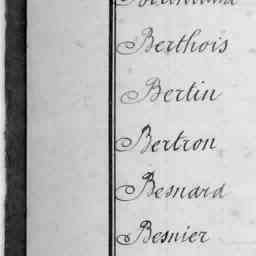 Berthois
Bertin
Bertron
Besnard
Besnier